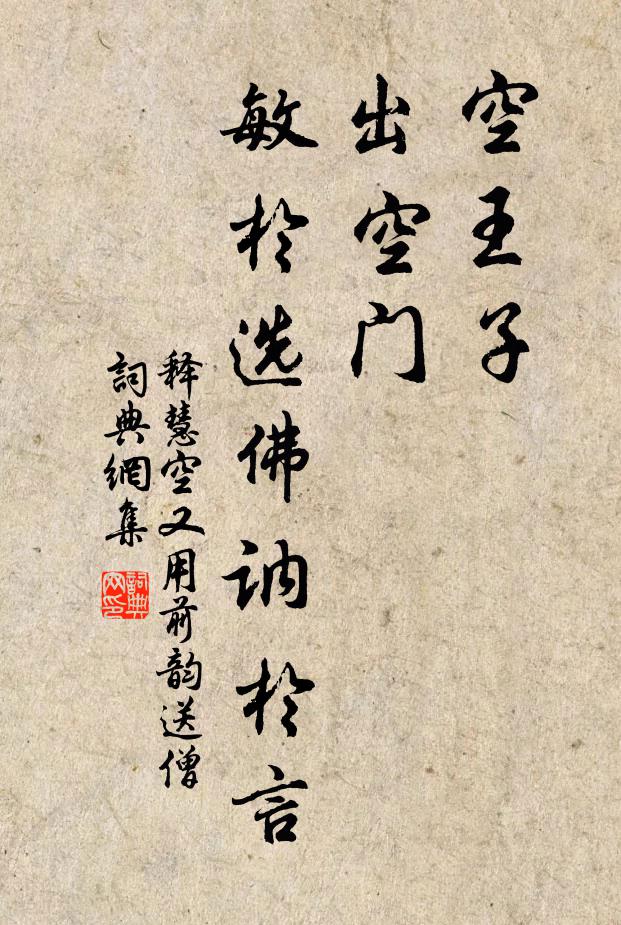 空王子
出空门
敏於选佛讷於言
释慧空又用前韵送僧
詞典網集
詞典
网印